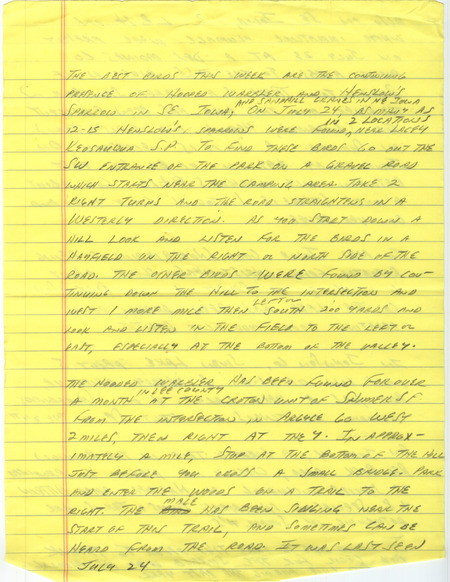 THE BEST BIRDS THIS WEEK ARE THE CONTINUING
PRESENCE OF HOODED WARBLER AND HENSLOW'S
AND SANDHILL CRANES IN NE IOWA
SPARROW IN SE IOWA, ON JULY 24, AS MANY AS
IN 2 LOCATIONS
12-15 HENSLOW'S SPARROWS WERE FOUND, NEAR LACEY
KEOSAUQUA S.P. TO FIND THESE BIRDS GO OUT THE
SW ENTRANCE OF THE PARK ON A GRAVEL ROAD
WHICH STARTS NEAR THE CAMPING AREA. TAKE 2
RIGHT TURNS AND THE ROAD STRAIGHTENS IN A
WESTERLY DIRECTION. AS YOU START DOWN A
HILL LOOK AND LISTEN FOR THE BIRDS IN A
HAYFIELD ON THE RIGHT OR NORTH SIDE OF THE
ROAD. THE OTHER BIRDS WERE FOUND BY CON-
TINUING DOWN THE HILL TO THE INTERSECTION AND
LEFT OR
WEST 1 MORE MILE THEN SOUTH 200 YARDS AND
LOOK AND LISTEN IN THE FIELD TO THE LEFT OR
EAST, ESPECIALLY AT THE BOTTOM OF THE VALLEY.
THE HOODED WARBLER HAS BEEN FOUND FOR OVER
IN LEE COUNTY
A MONTH AT THE CROTON UNIT OF SHIMEK SF
FROM THE INTERSECTION IN ARGYLE GO WEST
2 MILES, THEN RIGHT AT THE Y. IN APPROX-
IMATELY A MILE, STOP AT THE BOTTOM OF THE HILL
JUST BEFORE YOU CROSS A SMALL BRIDGE. PARK
AND ENTER THE WOODS ON A TRAIL TO THE
MALE
RIGHT. THE BIRD HAS BEEN SINGING NEAR THE
START OF THIS TRAIL, AND SOMETIMES CAN BE
HEARD FROM THE ROAD. IT WAS LAST SEEN
JULY 24.